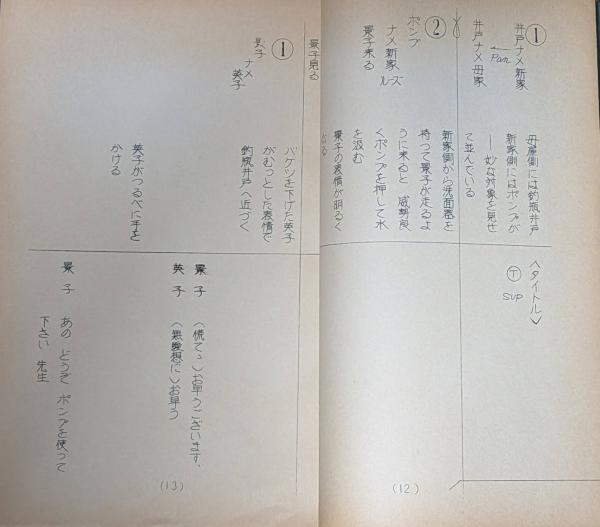 ①
井戸ナメ新家
Pan
井戸ナメ母家
母屋側には釣瓶井戸
新家側にはポンプが
――妙な対象を見せ
て並んでいる
へタイトル﹀
Ⓣ
SUP
②
ポンプ
ナメ新家
ルーズ
景子来る
新家側から洗面器を
持って景子が走るよ
うに来ると 威勢良
くポンプを押して水
を汲む
景子の表情が明るく
(12)
景子見る
①
景子
ナメ
英子
バケツを下げた英子
がむっとした表情で
釣瓶井戸へ近づく
英子がつるべに手を
かける
景子 (慌てゝ)お早うございます。
英子 (無愛想に)お早う
景子 あの どうぞ ポンプを使って
下さい 先生
(13)